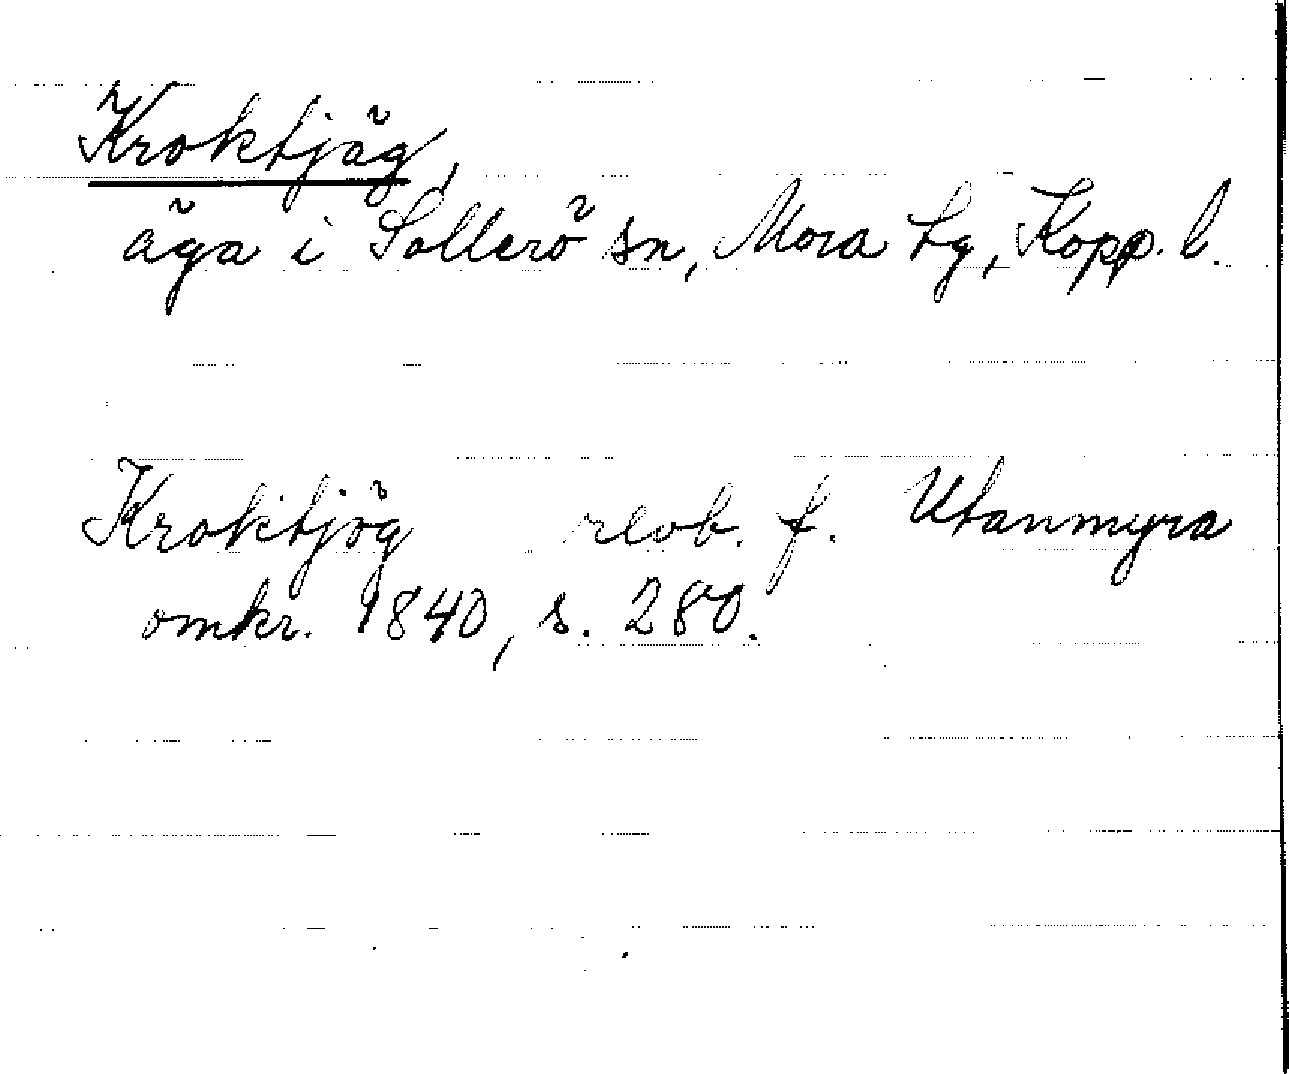 Kroktjäg,
äga i Sollerö sn, Mora tg, Kopp. l.
Kroktjög revb. f. Utanmyra
omkr. 1840, s. 280.